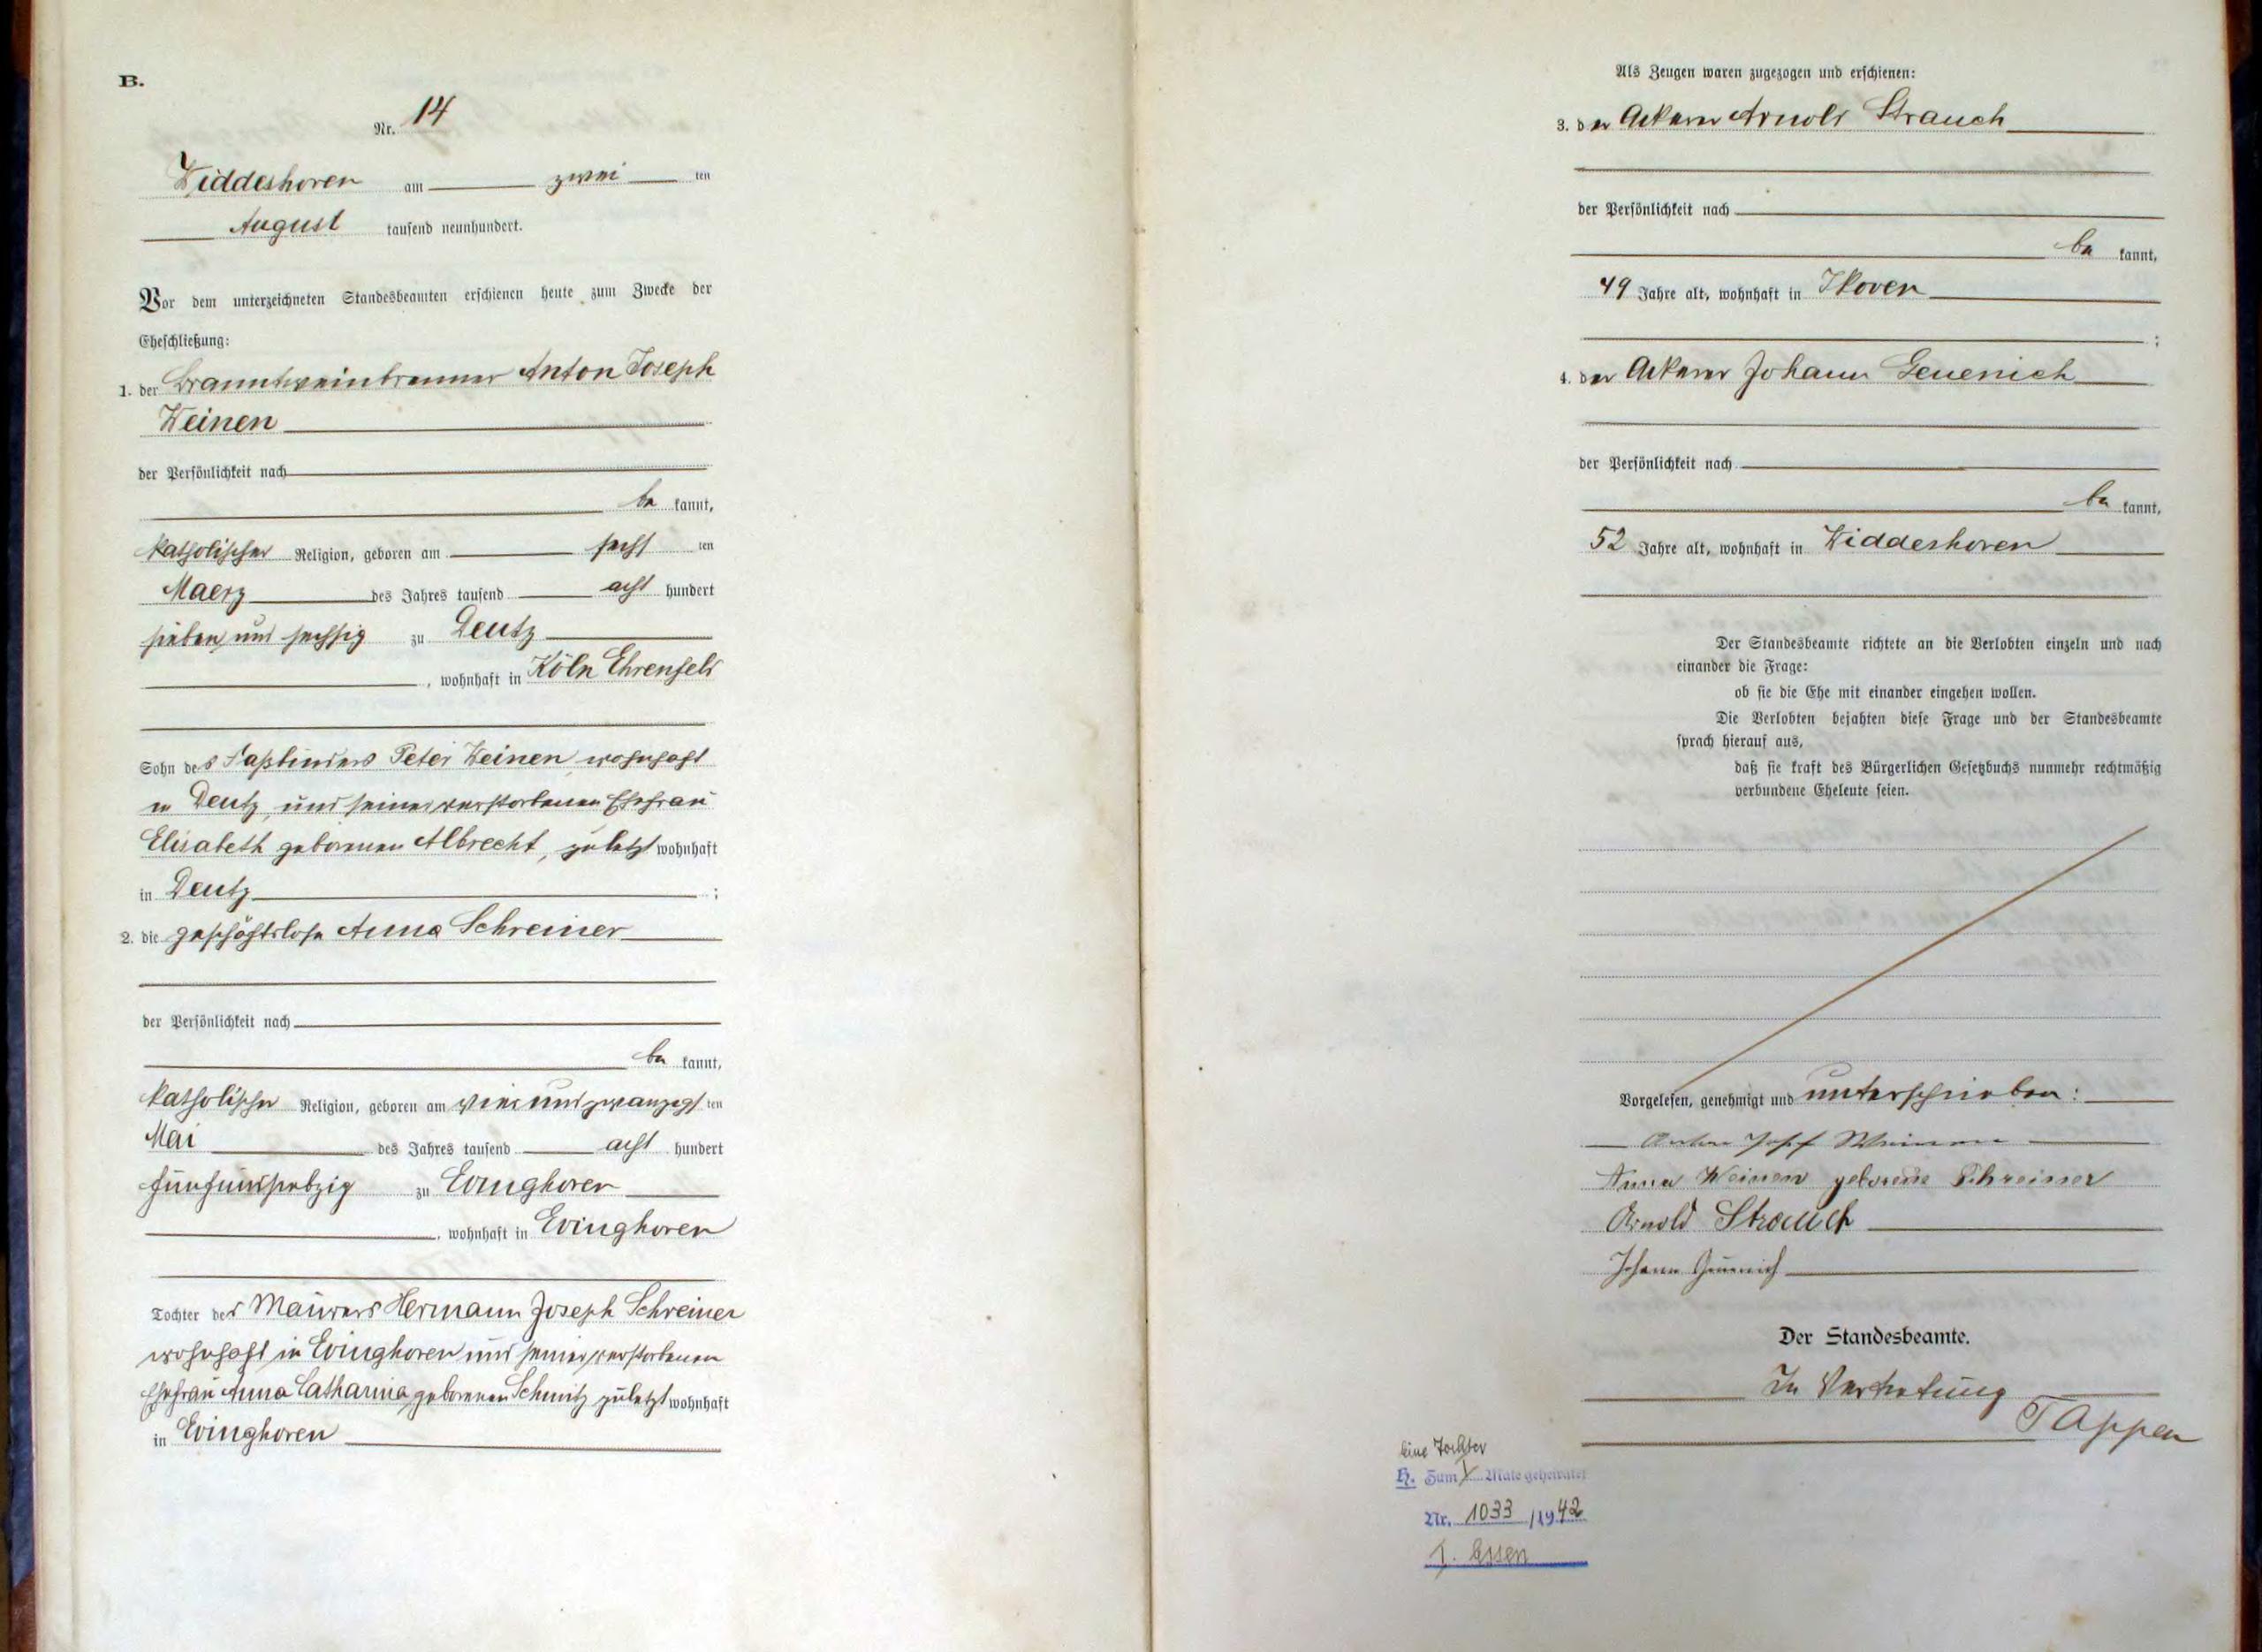 B.
Nr. 14
Widdeshoven am zwei ten
August tausend neunhundert.
Vor dem unterzeichneten Standesbeamten erschienen heute zum Zwecke der
Eheschließung:
1. der Branntweinbrenner Anton Joseph
Weinen
der Persönlichkeit nach
be kannt,
katholischer Religion, geboren am sechs ten
Maerz des Jahres tausend acht hundert
sieben und sechsig zu Deutz
, wohnhaft in Köln Ehrenfeld
Sohn des Faßbinders Peter Weinen wohnhaft
in Deutz, und seiner verstorbenen Ehefrau
Elisabeth geborenen Albrecht, zuletzt wohnhaft
in Deutz ;
2. die geschäftslose Anna Schreiner
der Persönlichkeit nach
be kannt,
katholischer Religion, geboren am vier und zwanzigs ten
Mai des Jahres tausend acht hundert
fünfundsiebzig zu Evinghoven
, wohnhaft in Evinghoven
Tochter des Maurers Hermann Joseph Schreiner
wohnhaft in Evinghoven und seiner verstorbenen
Ehefrau Anna Catharina geborenen Schmitz zuletzt wohnhaft
in Evinghoven
Als Zeugen waren zugezogen und erschienen:
3. der Ackerer Arnold Strauch
der Persönlichkeit nach
be kannt,
49 Jahre alt, wohnhaft in Ikoven
;
4. der Ackerer Johann Geuenich
der Persönlichkeit nach
be kannt,
52 Jahre alt, wohnhaft in Widdeshoven
Der Standesbeamte richtete an die Verlobten einzeln und nach
einander die Frage:
ob sie die Ehe mit einander eingehen wollen.
Die Verlobten bejahten diese Frage und der Standesbeamte
sprach hierauf aus,
daß sie kraft des Bürgerlichen Gesetzbuchs nunmehr rechtmäßig
verbundene Eheleute seien.
Vorgelesen, genehmigt und unterschrieben:
Anton Josef Weinen
Anna Weinen geborene Schreiner
Arnold Strauch
Johann Geuenich
Der Standesbeamte.
In Vertretung
Tappen
Eine Tochter
H. Zum I Male geheiratet
Nr. 1033 /1942
I. Essen